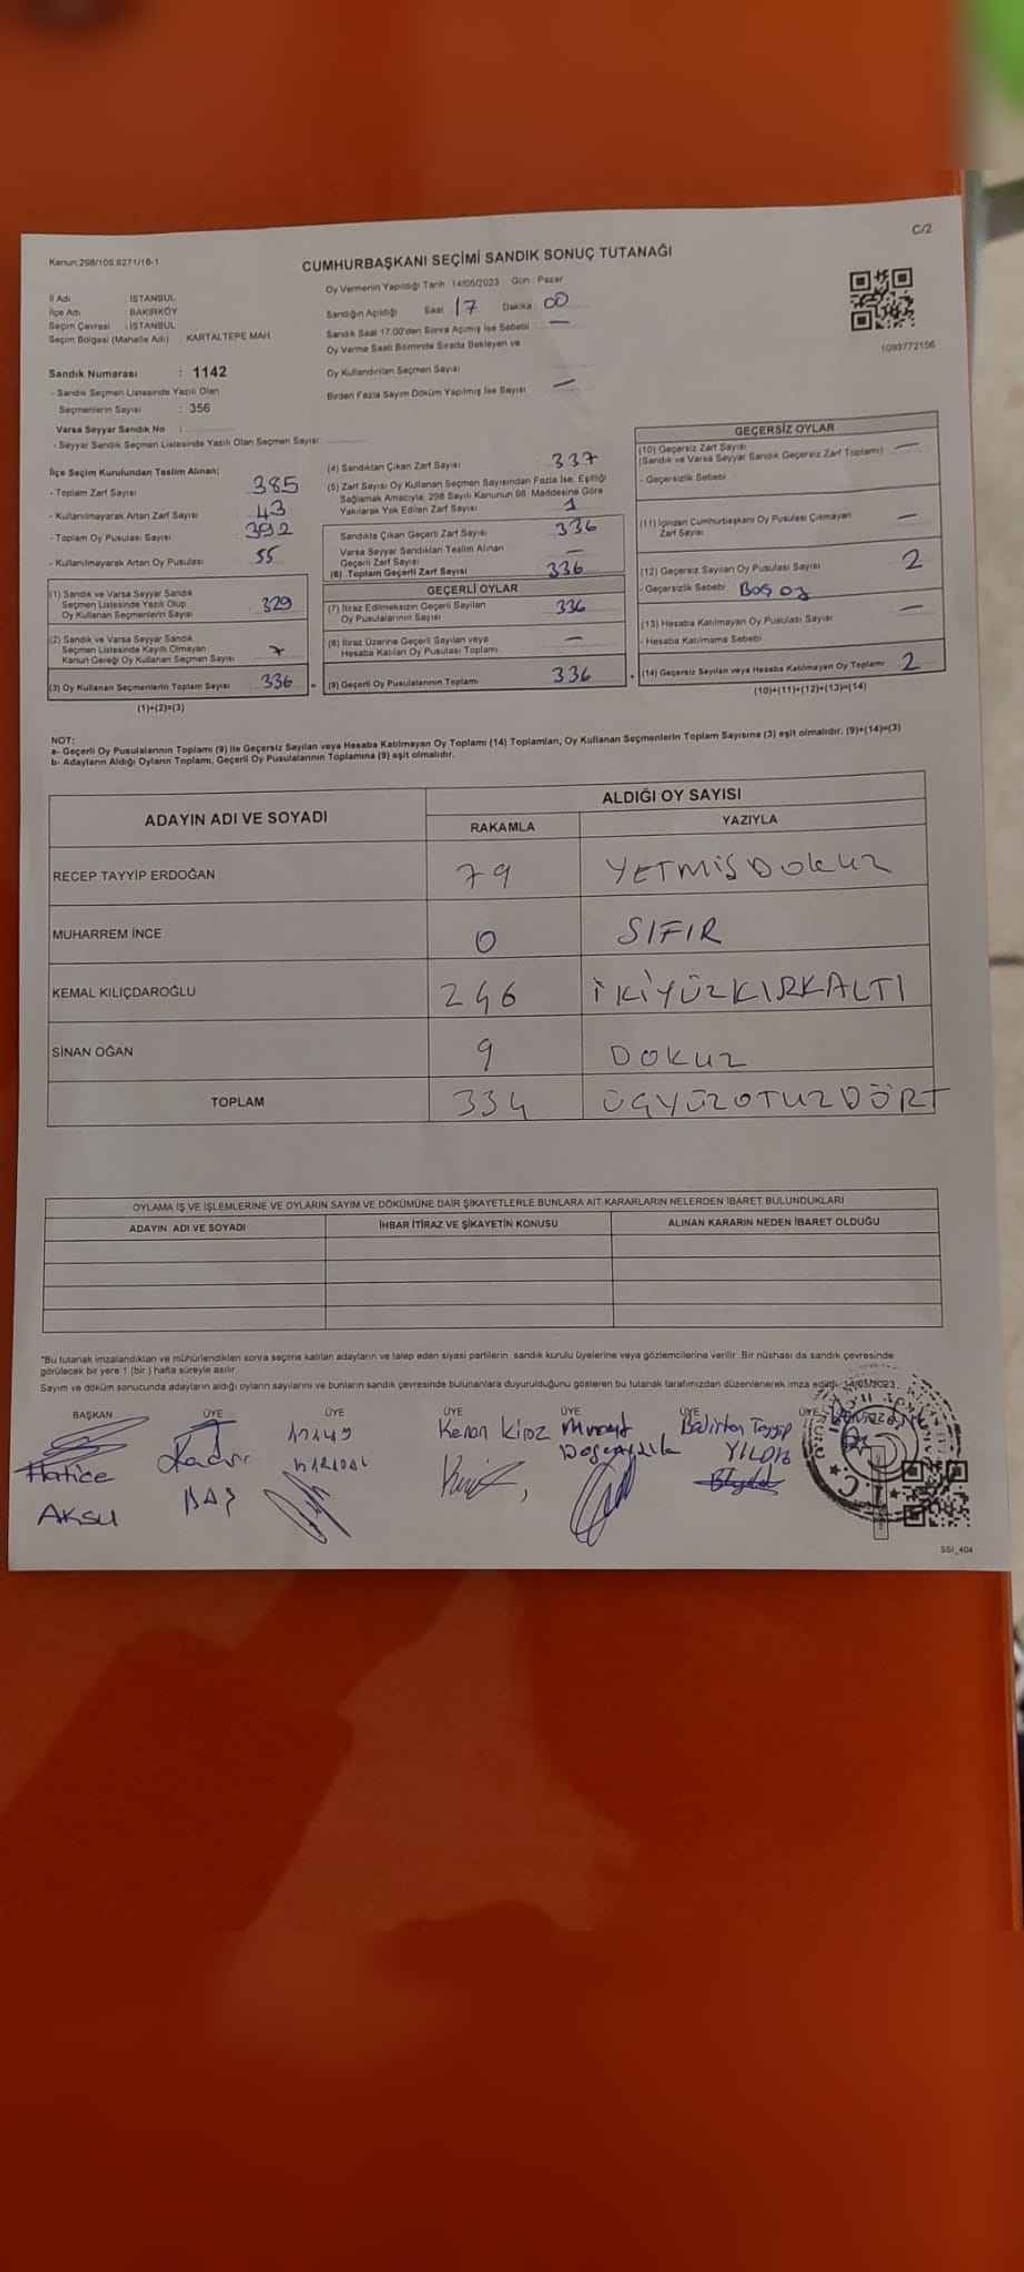 C/2
Kanun:298/105.6271/16-1
CUMHURBAŞKANI SEÇİMİ SANDIK SONUÇ TUTANAĞI
İl Adı : İSTANBUL
İlçe Adı : BAKIRKÖY
Seçim Çevresi : İSTANBUL
Seçim Bölgesi (Mahalle Adı) KARTALTEPE MAH
Oy Vermenin Yapıldığı Tarih 14/05/2023 Gün: Pazar
Sandığın Açıldığı Saat 17 Dakika 00
Sandık Saat 17.00'den Sonra Açılmış İse Sebebi —
Oy Verme Saati Bitiminde Sırada Bekleyen ve
Oy Kullandırılan Seçmen Sayısı
Birden Fazla Sayım Döküm Yapılmış İse Sayısı —
1093772156
Sandık Numarası : 1142
- Sandık Seçmen Listesinde Yazılı Olan
Seçmenlerin Sayısı : 356
Varsa Seyyar Sandık No :
- Seyyar Sandık Seçmen Listesinde Yazılı Olan Seçmen Sayısı:
İlçe Seçim Kurulundan Teslim Alınan;
- Toplam Zarf Sayısı 385
- Kullanılmayarak Artan Zarf Sayısı 43
- Toplam Oy Pusulası Sayısı 392
- Kullanılmayarak Artan Oy Pusulası 55
(1) Sandık ve Varsa Seyyar Sandık
Seçmen Listesinde Yazılı Olup
Oy Kullanan Seçmenlerin Sayısı 329
(2) Sandık ve Varsa Seyyar Sandık
Seçmen Listesinde Kayıtlı Olmayan
Kanun Gereği Oy Kullanan Seçmen Sayısı 7
(3) Oy Kullanan Seçmenlerin Toplam Sayısı 336
(1)+(2)=(3)
(4) Sandıktan Çıkan Zarf Sayısı 337
(5) Zarf Sayısı Oy Kullanan Seçmen Sayısından Fazla İse, Eşitliği
Sağlamak Amacıyla, 298 Sayılı Kanunun 98. Maddesine Göre
Yakılarak Yok Edilen Zarf Sayısı 1
Sandıkta Çıkan Geçerli Zarf Sayısı 336
Varsa Seyyar Sandıktan Teslim Alınan
Geçerli Zarf Sayısı —
(6) Toplam Geçerli Zarf Sayısı 336
GEÇERLİ OYLAR
(7) İtiraz Edilmeksizin Geçerli Sayılan
Oy Pusulalarının Sayısı 336
(8) İtiraz Üzerine Geçerli Sayılan veya
Hesaba Katılan Oy Pusulası Toplamı —
(9) Geçerli Oy Pusulalarının Toplamı 336
GEÇERSİZ OYLAR
(10) Geçersiz Zarf Sayısı
(Sandık ve Varsa Seyyar Sandık Geçersiz Zarf Toplamı) —
- Geçersizlik Sebebi
(11) İçinden Cumhurbaşkanı Oy Pusulası Çıkmayan
Zarf Sayısı —
(12) Geçersiz Sayılan Oy Pusulası Sayısı 2
- Geçersizlik Sebebi Boş oy
(13) Hesaba Katılmayan Oy Pusulası Sayısı —
- Hesaba Katılmama Sebebi
(14) Geçersiz Sayılan veya Hesaba Katılmayan Oy Toplamı 2
(10)+(11)+(12)+(13)=(14)
NOT:
a- Geçerli Oy Pusulalarının Toplamı (9) ile Geçersiz Sayılan veya Hesaba Katılmayan Oy Toplamı (14) Toplamları, Oy Kullanan Seçmenlerin Toplam Sayısına (3) eşit olmalıdır. (9)+(14)=(3)
b- Adayların Aldığı Oyların Toplamı, Geçerli Oy Pusulalarının Toplamına (9) eşit olmalıdır.
ADAYIN ADI VE SOYADI ALDIĞI OY SAYISI
RAKAMLA YAZIYLA
RECEP TAYYİP ERDOĞAN 79 YETMİŞDokuz
MUHARREM İNCE 0 SIFIR
KEMAL KILIÇDAROĞLU 246 İKİYÜZKIRKALTI
SİNAN OĞAN 9 DOKUZ
TOPLAM 334 ÜÇYÜZOTUZDÖRT
OYLAMA İŞ VE İŞLEMLERİNE VE OYLARIN SAYIM VE DÖKÜMÜNE DAİR ŞİKAYETLERLE BUNLARA AİT KARARLARIN NELERDEN İBARET BULUNDUKLARI
ADAYIN ADI VE SOYADI İHBAR İTİRAZ VE ŞİKAYETİN KONUSU ALINAN KARARIN NEDEN İBARET OLDUĞU
*Bu tutanak imzalandıktan ve mühürlendikten sonra seçime katılan adayların ve talep eden siyasi partilerin sandık kurulu üyelerine veya gözlemcilerine verilir. Bir nüshası da sandık çevresinde
görülecek bir yere 1 (bir) hafta süreyle asılır.
Sayım ve döküm sonucunda adayların aldığı oyların sayılarını ve bunların sandık çevresinde bulunanlara duyurulduğunu gösteren bu tutanak tarafımızdan düzenlenerek imza edildi. 14/05/2023
BAŞKAN ÜYE ÜYE ÜYE ÜYE ÜYE ÜYE
Hatice
AKSU
Kadir
BAŞ
Kenan Kiroz
YILDIZ
SSI_404